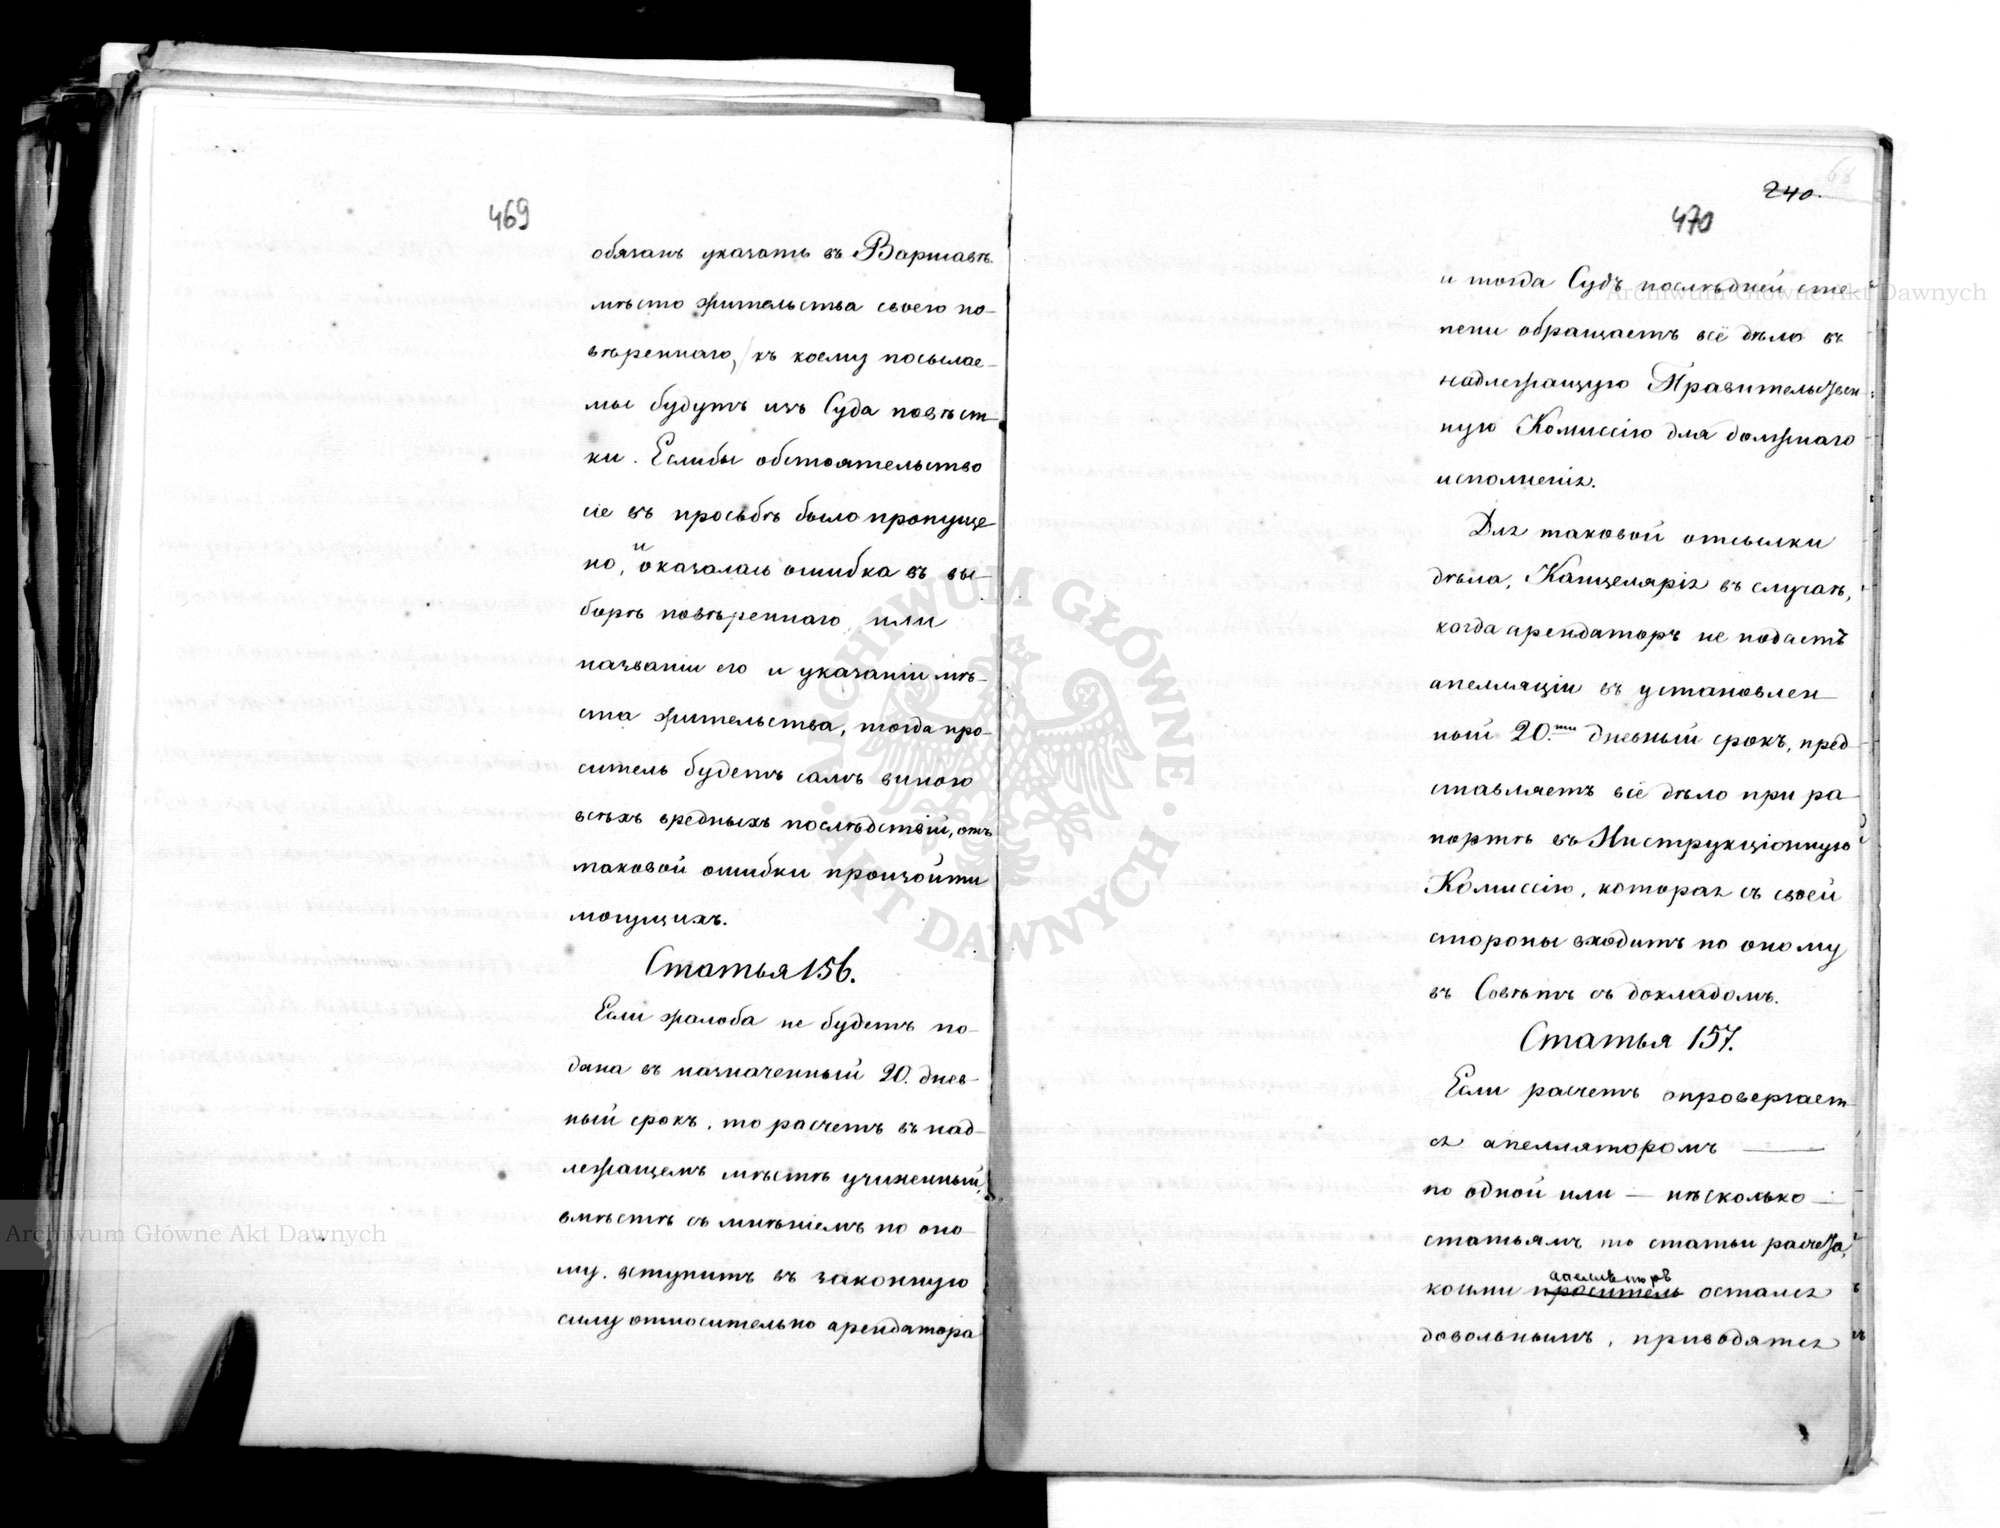 469
обязанъ указать въ Варшавѣ
мѣсто жительства своего по-
вѣреннаго, къ коему посылае-
мы будутъ изъ Суда повѣст-
ки. Еслибы обстоятельство
сіе въ просьбѣ было пропуще
но, и оказалась ошибка въ вы-
борѣ повѣреннаго или
названіи его и указаніи мѣ-
ста жительства, тогда про-
ситель будетъ самъ виною
всѣхъ вредныхъ послѣдствій, отъ
таковой ошибки произойти
могущихъ.
Статья 156.
Если жалоба не будетъ по-
дана въ назначенный 20. днев-
ный срокъ, то расчетъ въ над-
лежащемъ мѣстѣ учиненный,
вмѣстѣ съ мнѣніемъ по оно-
му, вступитъ въ законную
силу относительно арендатора
240.
470
и тогда Судъ послѣдней сте-
пени обращаетъ всё дѣло въ
надлежащую Правительствен-
ную Комиссію для должнаго
исполненія.
Для таковой отсылки
дѣла, Канцелярія въ случаѣ,
когда арендаторъ не подастъ
апелляціи въ установлен-
ный 20.ти дневный срокъ, пред-
ставляетъ всё дѣло при ра-
портѣ въ Инструкціонную
Комиссію, которая съ своей
стороны входитъ по оному
въ Совѣтъ съ докладомъ.
Статья 157.
Если расчетъ опровергает-
ся апелляторомъ
по одной или нѣсколько
статьямъ то статьи расчета,
апелляторъ
коими проситель остался
довольнымъ, приводятся
Archiwum Główne Akt Dawnych
Archiwum Główne Akt Dawnych
ARCHIWUM GŁÓWNE · AKT DAWNYCH ·